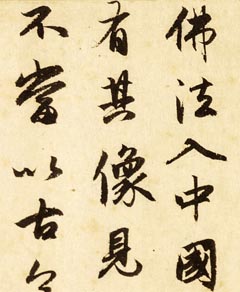 佛法入中國
有其像見
不當以古今